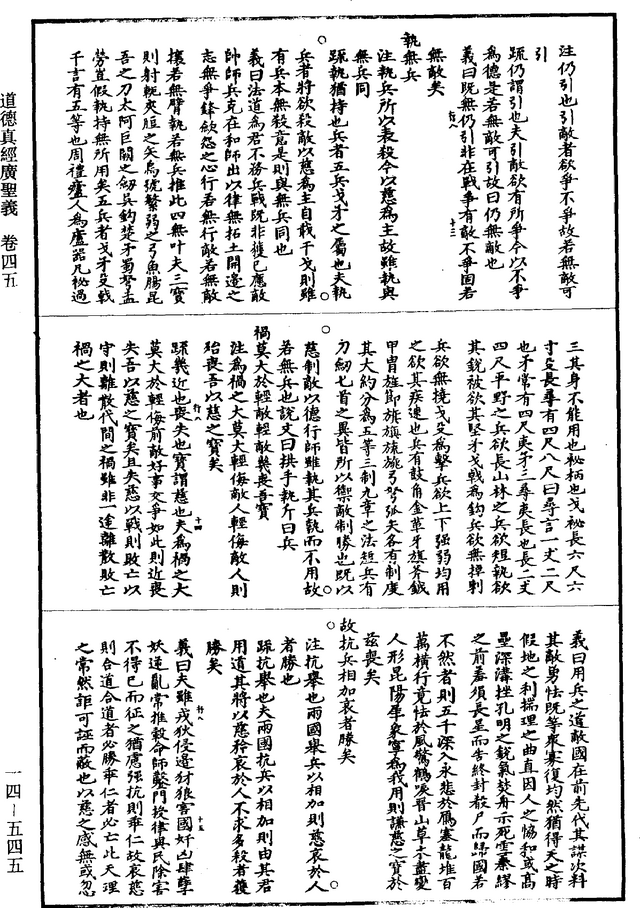 道德真經廣聖義　卷四五
一四—五四五
注仍引也引敵者欲爭不爭故若無敵可
引
疏仍謂引也夫引敵欲有所爭今以不爭
為德是若無敵可引故曰仍無敵也
義曰既無仍引非在戰爭有敵不爭固若
無敵矣
執無兵
注執兵所以表殺今以慈為主故雖執與
無兵同
疏執猶持也兵者五兵戈矛之屬也夫執
兵者將欲殺敵以慈為主自戢干戈則雖
有兵本無殺意是則與無兵同也
義曰法道為君不務兵戰既非獲已應敵
帥師兵克在和師出以律無拓土開邊之
志無爭鋒歛怨之心行若無行敵若無敵
攘若無臂執若無兵推此四無叶夫三寶
則射軹夾脰之矢烏號繁弱之弓魚腸昆
吾之刀太阿巨闕之劒吳鈎楚矛蜀弩孟
勞豈假執持無所用矣五兵者戈矛殳戟
干言有五等也周禮廬人為廬器凡柲過
三其身不能用也柲柄也戈柲長六尺六
寸殳長尋有四尺八尺曰尋言一丈二尺
也矛常有四尺夷矛三尋夷長也長二丈
四尺平野之兵欲長山林之兵欲短執欲
其銳被欲其堅矛戈戟為鈎兵欲無掉刺
兵欲無撓戈殳為擊兵欲上下强弱均用
之欲其疾速也兵有鼓角金革牙旗斧鉞
甲冑旌節旂旗旒旐弓弩弧矢各有制度
其大約分為五等三制九章之法短兵有
刀劒匕首之異皆所以禦敵制勝也既以
慈制敵以德行師雖執其兵執而不用故
若無兵也說文曰拱手執斤曰兵
禍莫大於輕敵輕敵幾喪吾寶
注為禍之大莫大輕侮敵人輕侮敵人則
殆喪吾以慈之寶矣
疏幾近也喪失也寶謂慈也夫為禍之大
莫大於輕侮前敵好事交爭如此則近喪
失吾以慈之寶矣且失慈以戰則敗亡以
守則離散代間之禍雖非一途離散敗亡
禍之大者也
義曰用兵之道敵國在前先代其謀次料
其敵勇怯既等衆寡復均然猶得天之時
假地之利揣理之曲直因人之恊和或高
壘深溝挫孔明之銳氣焚舟示死雪秦繆
之前羞須長星而告終封殽尸而歸國若
不然者則五千深入永悲於鴈塞龍堆百
萬橫行竟怯於風聲鶴唳晉山草木盡變
人形昆陽犀象寧為我用則謙慈之寶於
茲喪矣
故抗兵相加哀者勝矣
注抗舉也兩國舉兵以相加則慈哀於人
者勝也
疏抗舉也夫兩國抗兵以相加則由其君
用道其將以慈矜哀於人不求多殺者獲
勝矣
義曰夫雖戎狄侵邊犲狼害國奸凶肆孽
妖逆亂常推轂命師鑿門授律與民除害
不得已而征之猶慮强抗則乖仁故哀慈
則合道合道者必勝乖仁者必亡此天理
之常然詎可誣而敵也以慈之感無或忽